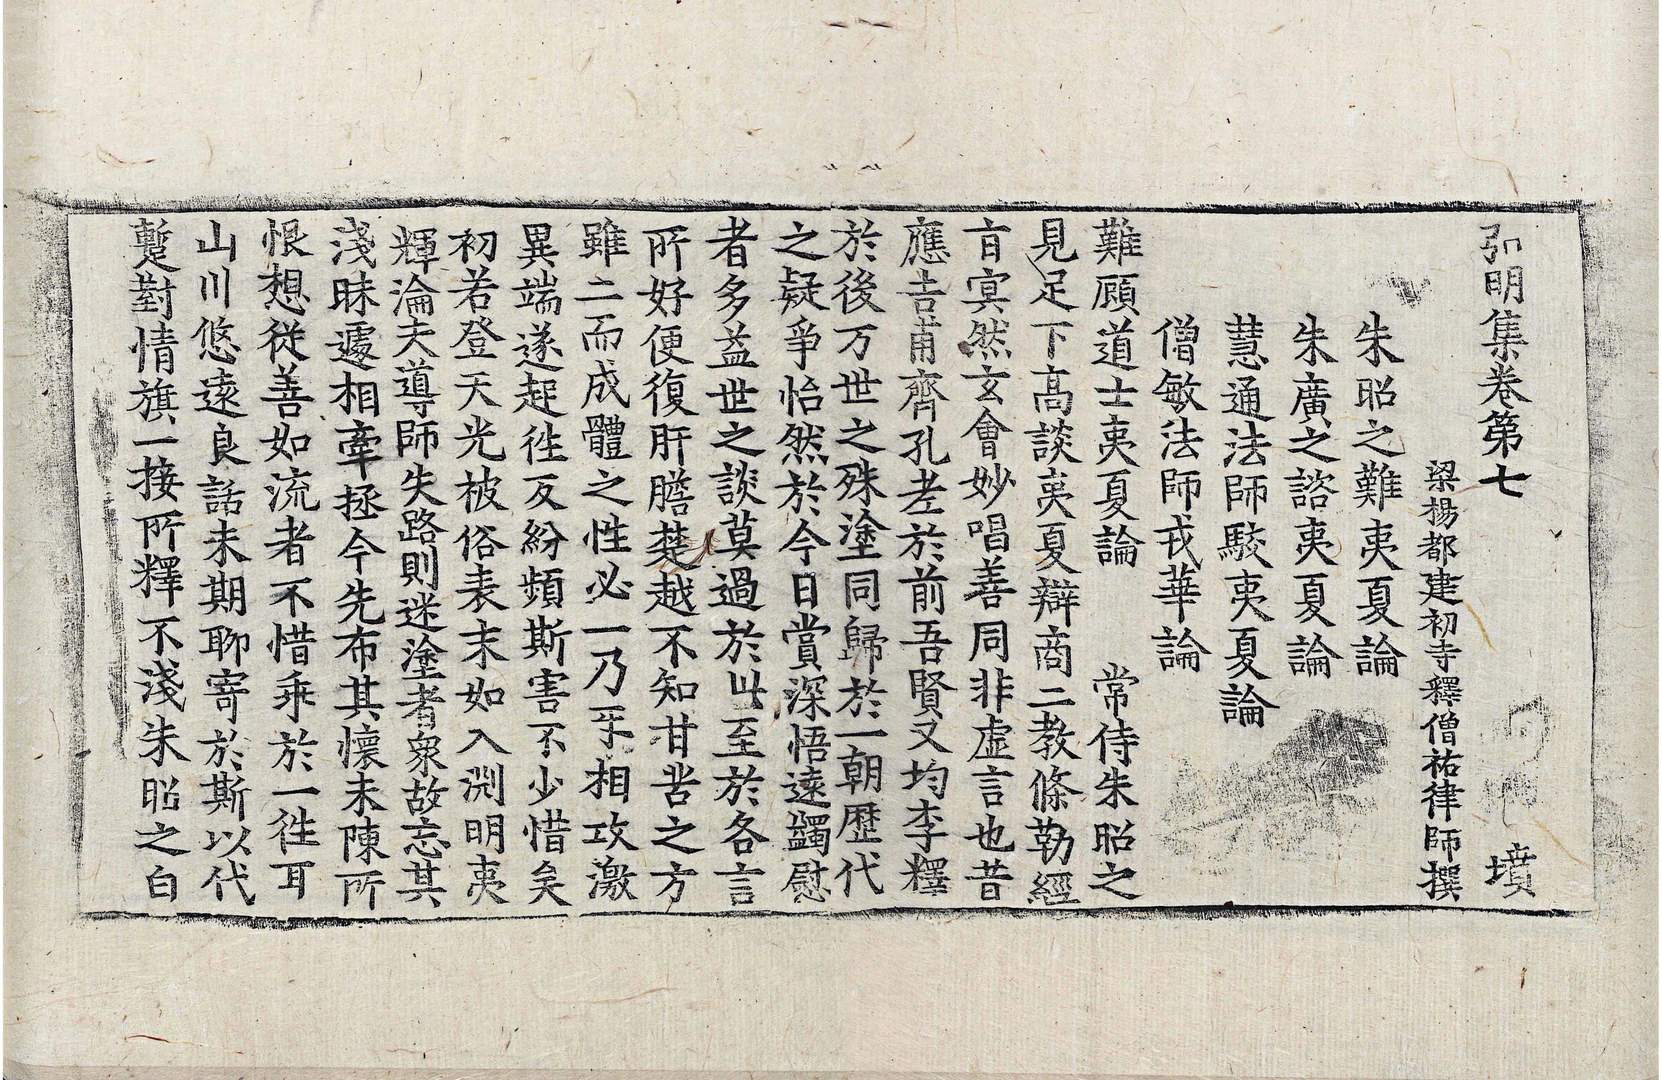 弘明集卷第七 墳
梁揚都建初寺釋僧祐律師撰
朱昭之難夷夏論
朱廣之諮夷夏論
慧通法師駮夷夏論
僧敏法師戎華論
難顧道士夷夏論 常侍朱昭之
見足下高談夷夏辯商二教條勒經
旨冥然玄會妙唱善同非虛言也昔
應吉甫齊孔老於前吾賢又均李釋
於後万世之殊塗同歸於一朝歷代
之疑爭怡然於今日賞深悟遠蠲慰
者多益世之談莫過於此至於各言
所好便復肝膽楚越不知甘苦之方
雖二而成體之性必一乃乎相攻激
異端遂起徃反紛頻斯害不少惜矣
初若登天光被俗表末如入淵明夷
輝淪夫導師失路則迷塗者衆故忘其
淺昧遽相牽拯今先布其懷未陳所
恨想從善如流者不惜乖於一徃耳
山川悠遠良話未期聊寄於斯以代
蹔對情旗一接所釋不淺朱昭之白